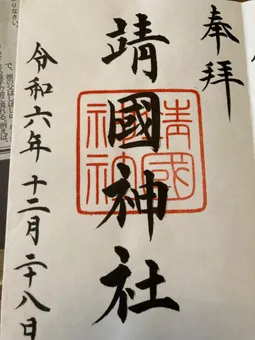 奉拝
靖國神社
靖國
神社
令和六年十二月二十八日